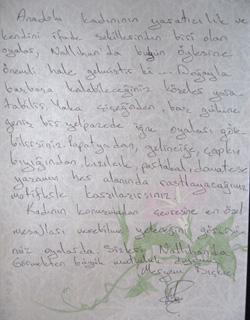 Anadolu kadınının yaratıcılık ve
kendini ifade şekillerinden birisi olan
oyalar, Nallıhan'da bugün öylesine
önemli hale gelmiştir ki ... Doğayla
başbaşa kalabileceğiniz köşeler yara-
tabilir, laka çiçeğinden baz gülüne
geniş bir yelpazede iğne oyaları göre-
bilirsiniz. Papatyadan, gelinciğe, çapkın
bıyığından, kızılcık, pastabal, domatese
yaşamın her alanında rastlayacağınız
motiflerle karşılaşırsınız.
Kadının konuşmadan çevresine en özel
mesajları verebilme yeteneğini görürsü-
nüz oyalarda. Sizleri Nallıhan'da
Görmekten büyük mutluluk duyarım
Meryem